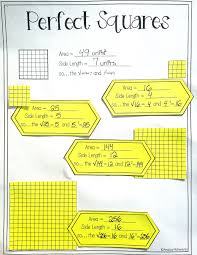 Perfect Squares
Area = 49 units²
Side Length = 7 units
so... the √49=7 and 7²=49
Area = 16
Side Length = 4
so... the √16=4 and 4²=16
Area = 25
Side Length = 5
so... the √25=5 and 5²=25
Area = 144
Side Length = 12
so... the √144=12 and 12²=144
Area = 256
Side Length = 16
so... the √256=16 and 16²=256